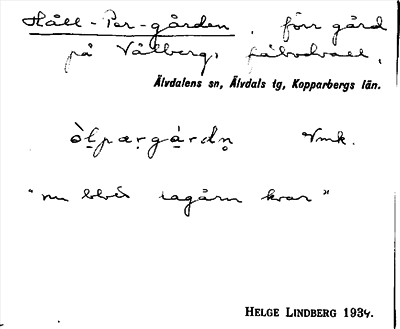 Håll-Par-gården, förr gård
på Vålberg, fäbodvall,
Älvdalens sn, Älvdals tg, Kopparbergs län.
òlpærgárdn Vmk.
"nu blott lagårn kvar"
HELGE LINDBERG 1934.